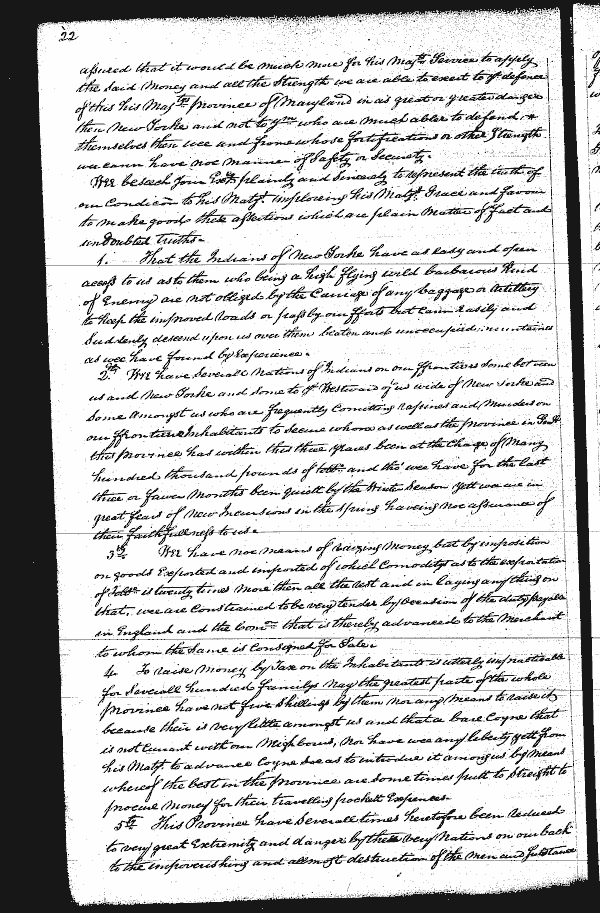 22
assured that it would be much more for his Maj.ts Service to apply
the said Money and all the Strength we are able to exert to ye defence
of this his Maj.ts Province of Maryland in as great or greater danger
then New Yorke and not to ym who are much abler to defend
themselves then wee and from whose fortifications or other Strength
we cann have noe manner of Safety or Security.
Wee beseech Your Exc.y plainly and Sincerely to represent the truth of
our Condic͠on to his Maj.ty imploreing his Maj.ts Grace and favour
to make good these assertions which are plain Matter of fact and
undoubted truths.
1. That the Indians of New Yorke have as easy and open
access to us as to them who being a high flying wild barbarous Kind
of Enemy are not obliged by the Carriage of any Baggage or Artillery
to keep the improved roads or pass by our fforts but cann easily and
Suddenly descend upon us over them beaten and unoccupied mountaines
as wee have found by Experience.
2.th Wee have Severall Nations of Indians on our ffrontiers Some between
us and New Yorke and Some to ye Westward of us wide of New Yorke and
Some amongst us who are frequently Comitting rapines and Murders on
our ffrontiere Inhabitants to Secure whome as well as the province in
this Province has within this three Yeares been at the Charge of Many
hundred thousand pounds of tobb.o and tho' wee have for the last
three or fower Months been quiett by the Winter Season yett wee are in
great fears of new Incursions in the Spring haveing noe assurance of
their faithfullness to us.
3.th Wee have noe means of raizing Money but by imposition
on goods Exported and imported of which Comodity as to the exportation
of Tobb.o is twenty times more then all the rest and in laying any thing on
that, we are Constrained to be very tender by occasion of the duty payable
in England and the Com.n that is thereby advanced to the Merchant
to whom the Same is Consigned for Sale.
4. To raise Money by Tax on the Inhabitants is utterly impracticable
for Severall hundred familys nay the greatest parte of the whole
Province have not five Shillings by them nor any Means to raise it
because their is very little amongst us and that a bare Coyne that
is not Currant with our Neighbours, Nor have wee any liberty yett from
his Maj.ty to advance Coyne soe as to introduce it among us by Means
whereof the best in the Province are some times putt to Streight to
procure Money for their travelling pockett Expences.
5.th This Province have Severall times heretofore been reduced
to very great Extremity and danger by these very Nations on our back
to the impoverishing and allmost destruction of the men and Substance